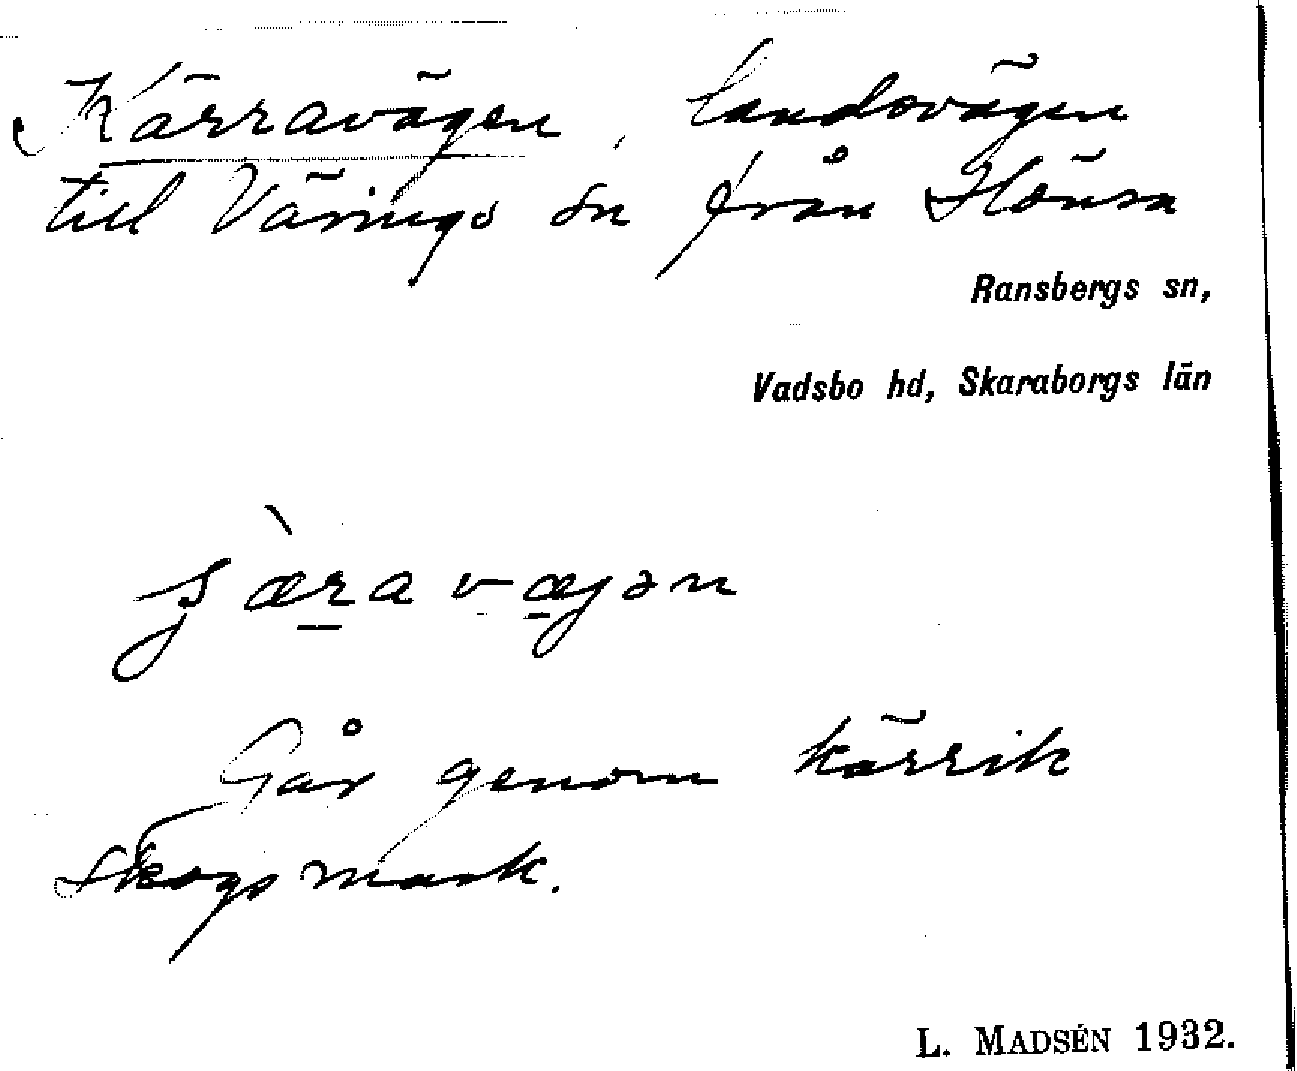 Kärravägen, landsvägen
till Värings sn från Hönsa
Ransbergs sn,
Vadsbo hd, Skaraborgs län
Går genom kärrik
skogsmark.
L. MADSÉN 1932.